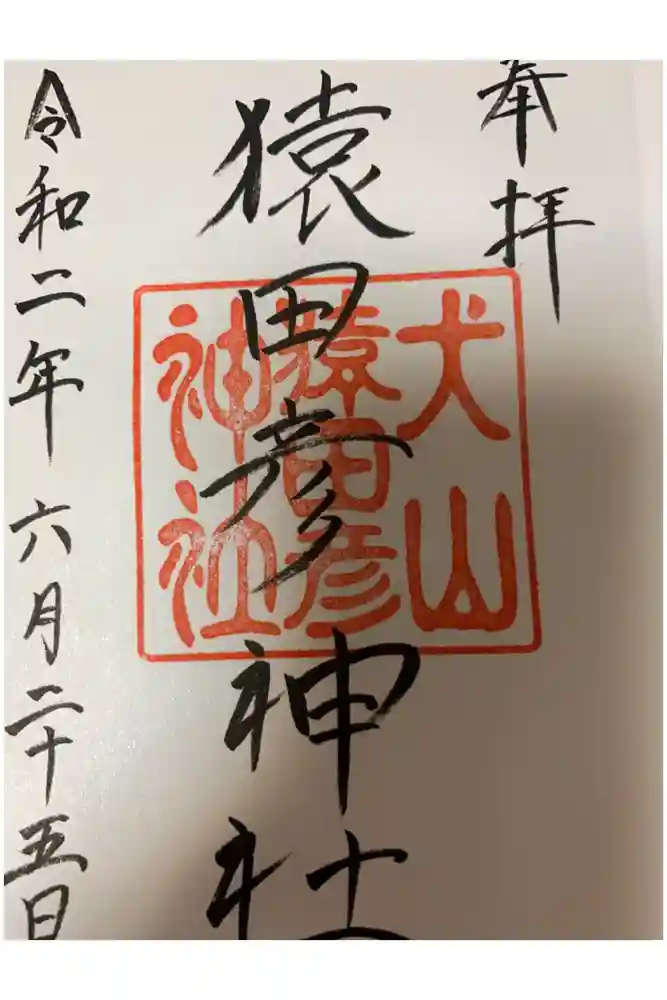 奉拝
犬山
猿田彦
神社
猿田彦神社
令和二年六月二十五日